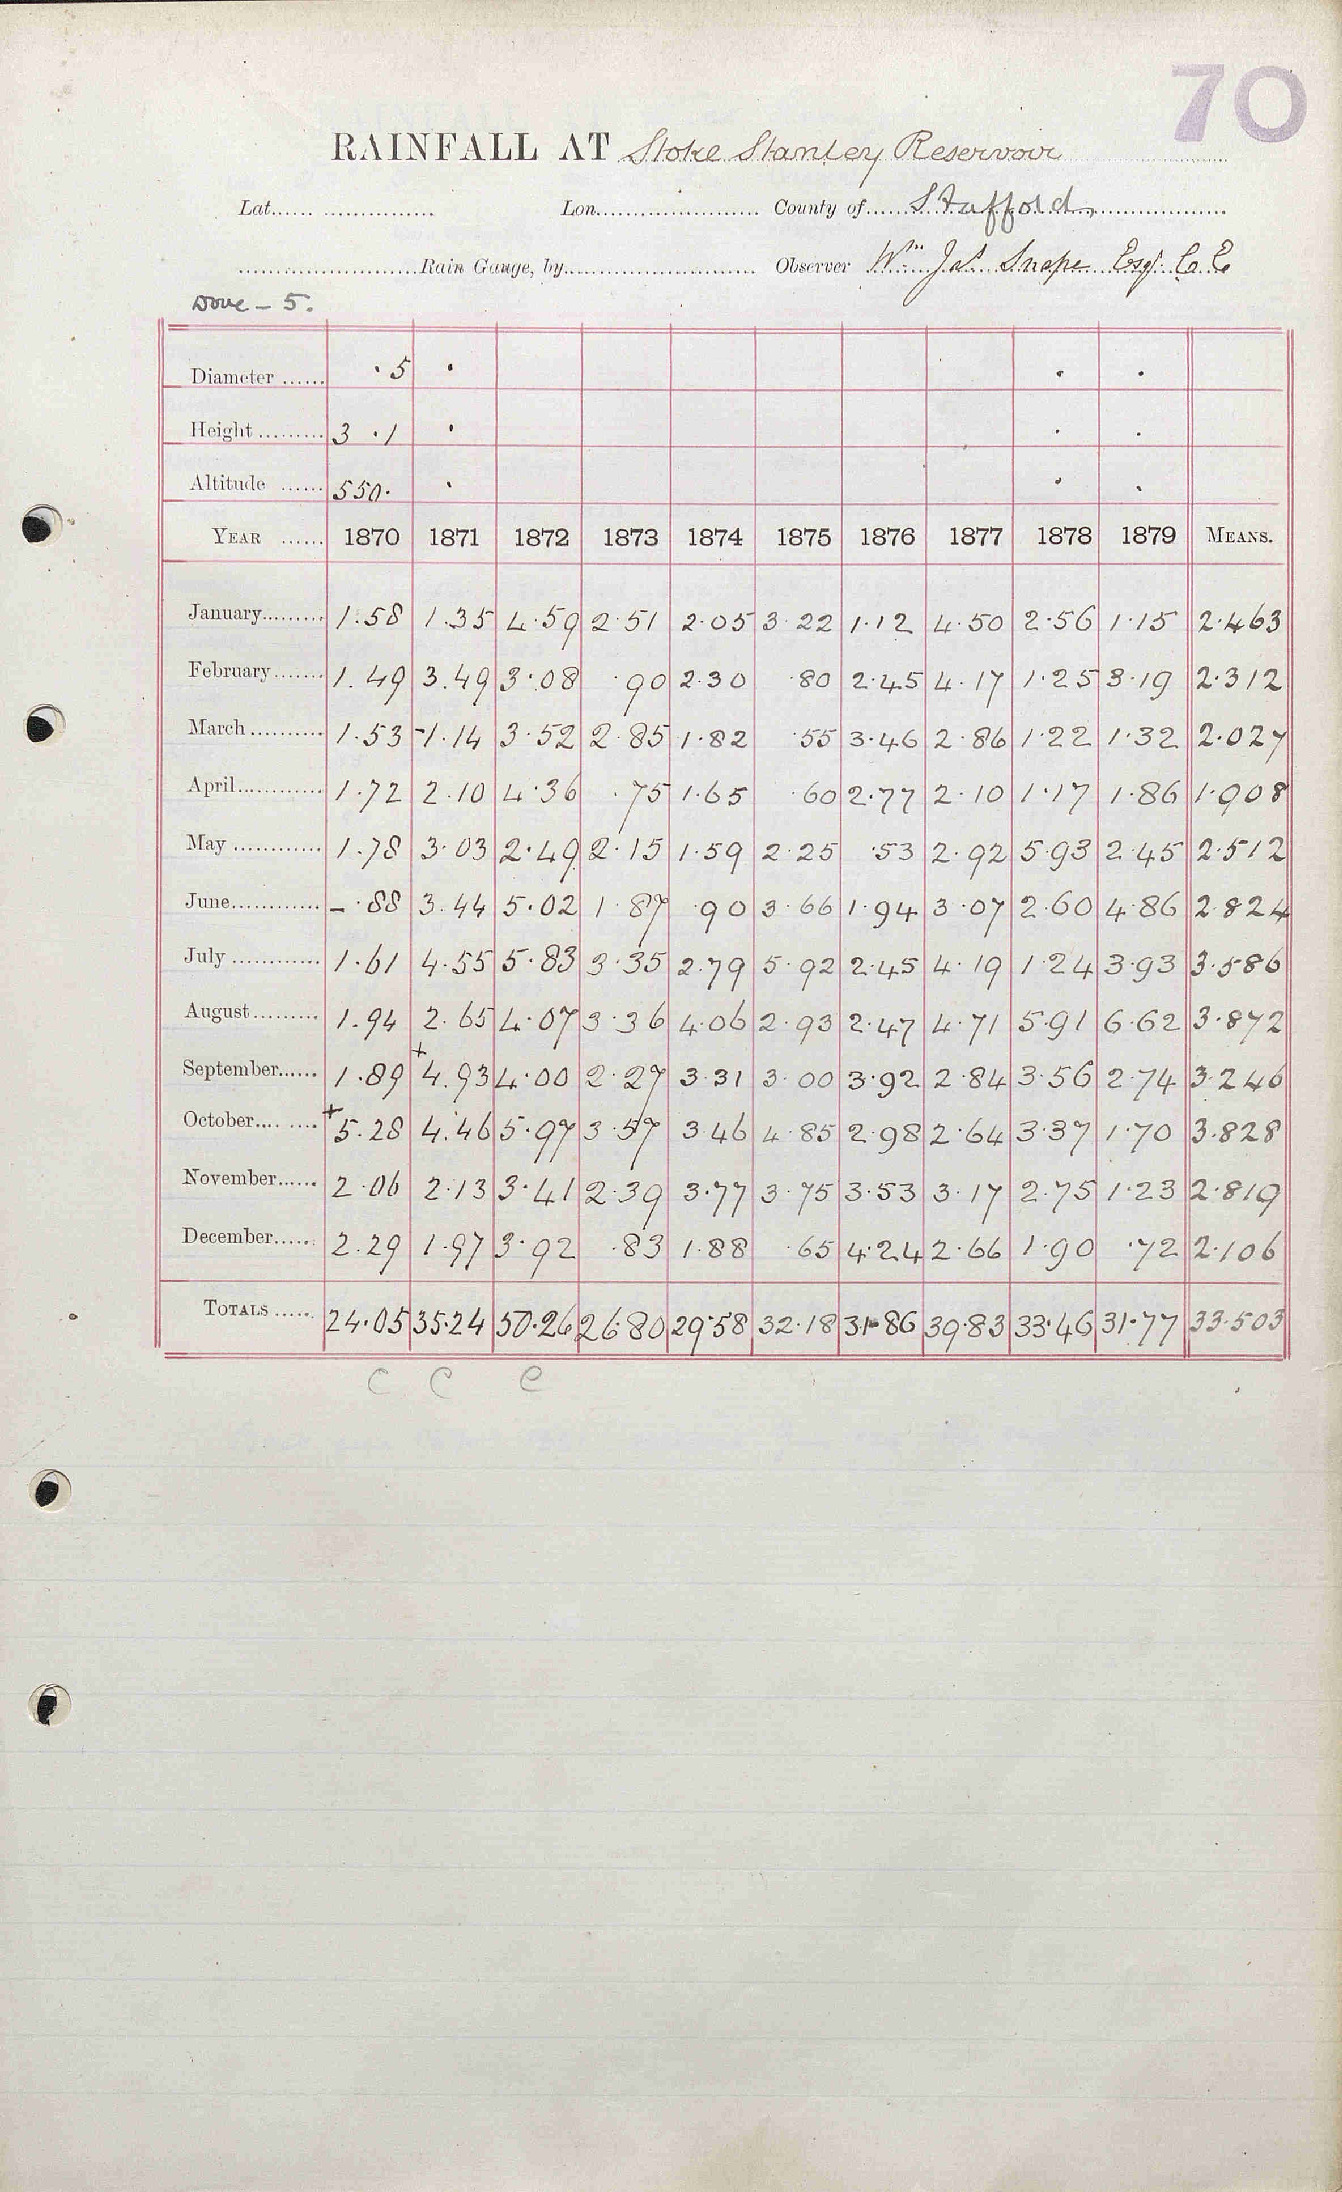 70
RAINFALL AT Stoke Stanley Reservoir
Lat. Lon. County of Stafford
Rain Gauge, by Observer Wm Jas Snape Esqr C E
Dove - 5.
Diameter ...... ·5 · · ·
Height ......... 3 ·1 · · ·
Altitude ...... 550· · · ·
YEAR ...... 1870 1871 1872 1873 1874 1875 1876 1877 1878 1879 MEANS.
January......... 1.58 1.35 4.59 2.51 2.05 3.22 1.12 4.50 2.56 1.15 2.463
February....... 1.49 3.49 3.08 .90 2.30 .80 2.45 4.17 1.25 3.19 2.312
March .......... 1.53 -1.14 3.52 2.85 1.82 .55 3.46 2.86 1.22 1.32 2.027
April............ 1.72 2.10 4.36 .75 1.65 .60 2.77 2.10 1.17 1.86 1.908
May ............ 1.78 3.03 2.49 2.15 1.59 2.25 .53 2.92 5.93 2.45 2.512
June............ - .88 3.44 5.02 1.87 .90 3.66 1.94 3.07 2.60 4.86 2.824
July ............ 1.61 4.55 5.83 3.35 2.79 5.92 2.45 4.19 1.24 3.93 3.586
August......... 1.94 2.65 4.07 3.36 4.06 2.93 2.47 4.71 5.91 6.62 3.872
September...... 1.89 +4.93 4.00 2.27 3.31 3.00 3.92 2.84 3.56 2.74 3.246
October.... .... +5.28 4.46 5.97 3.57 3.46 4.85 2.98 2.64 3.37 1.70 3.828
November...... 2.06 2.13 3.41 2.39 3.77 3.75 3.53 3.17 2.75 1.23 2.819
December...... 2.29 1.97 3.92 .83 1.88 .65 4.24 2.66 1.90 .72 2.106
TOTALS ...... 24.05 35.24 50.26 26.80 29.58 32.18 31.86 39.83 33.46 31.77 33.503
C C C